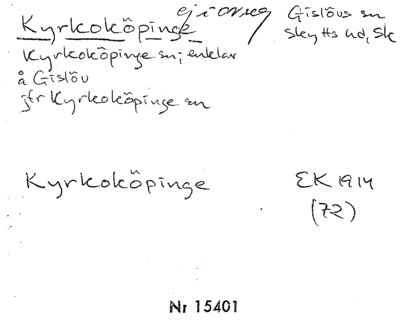 Kyrkoköpinge ej i orreg Gislövs sn
Skytts hd, Sk
Kyrkoköpinge sn; enklav
å Gislöv
jfr Kyrkoköpinge sn
Kyrkoköpinge EK 1914
(72)
Nr 15401